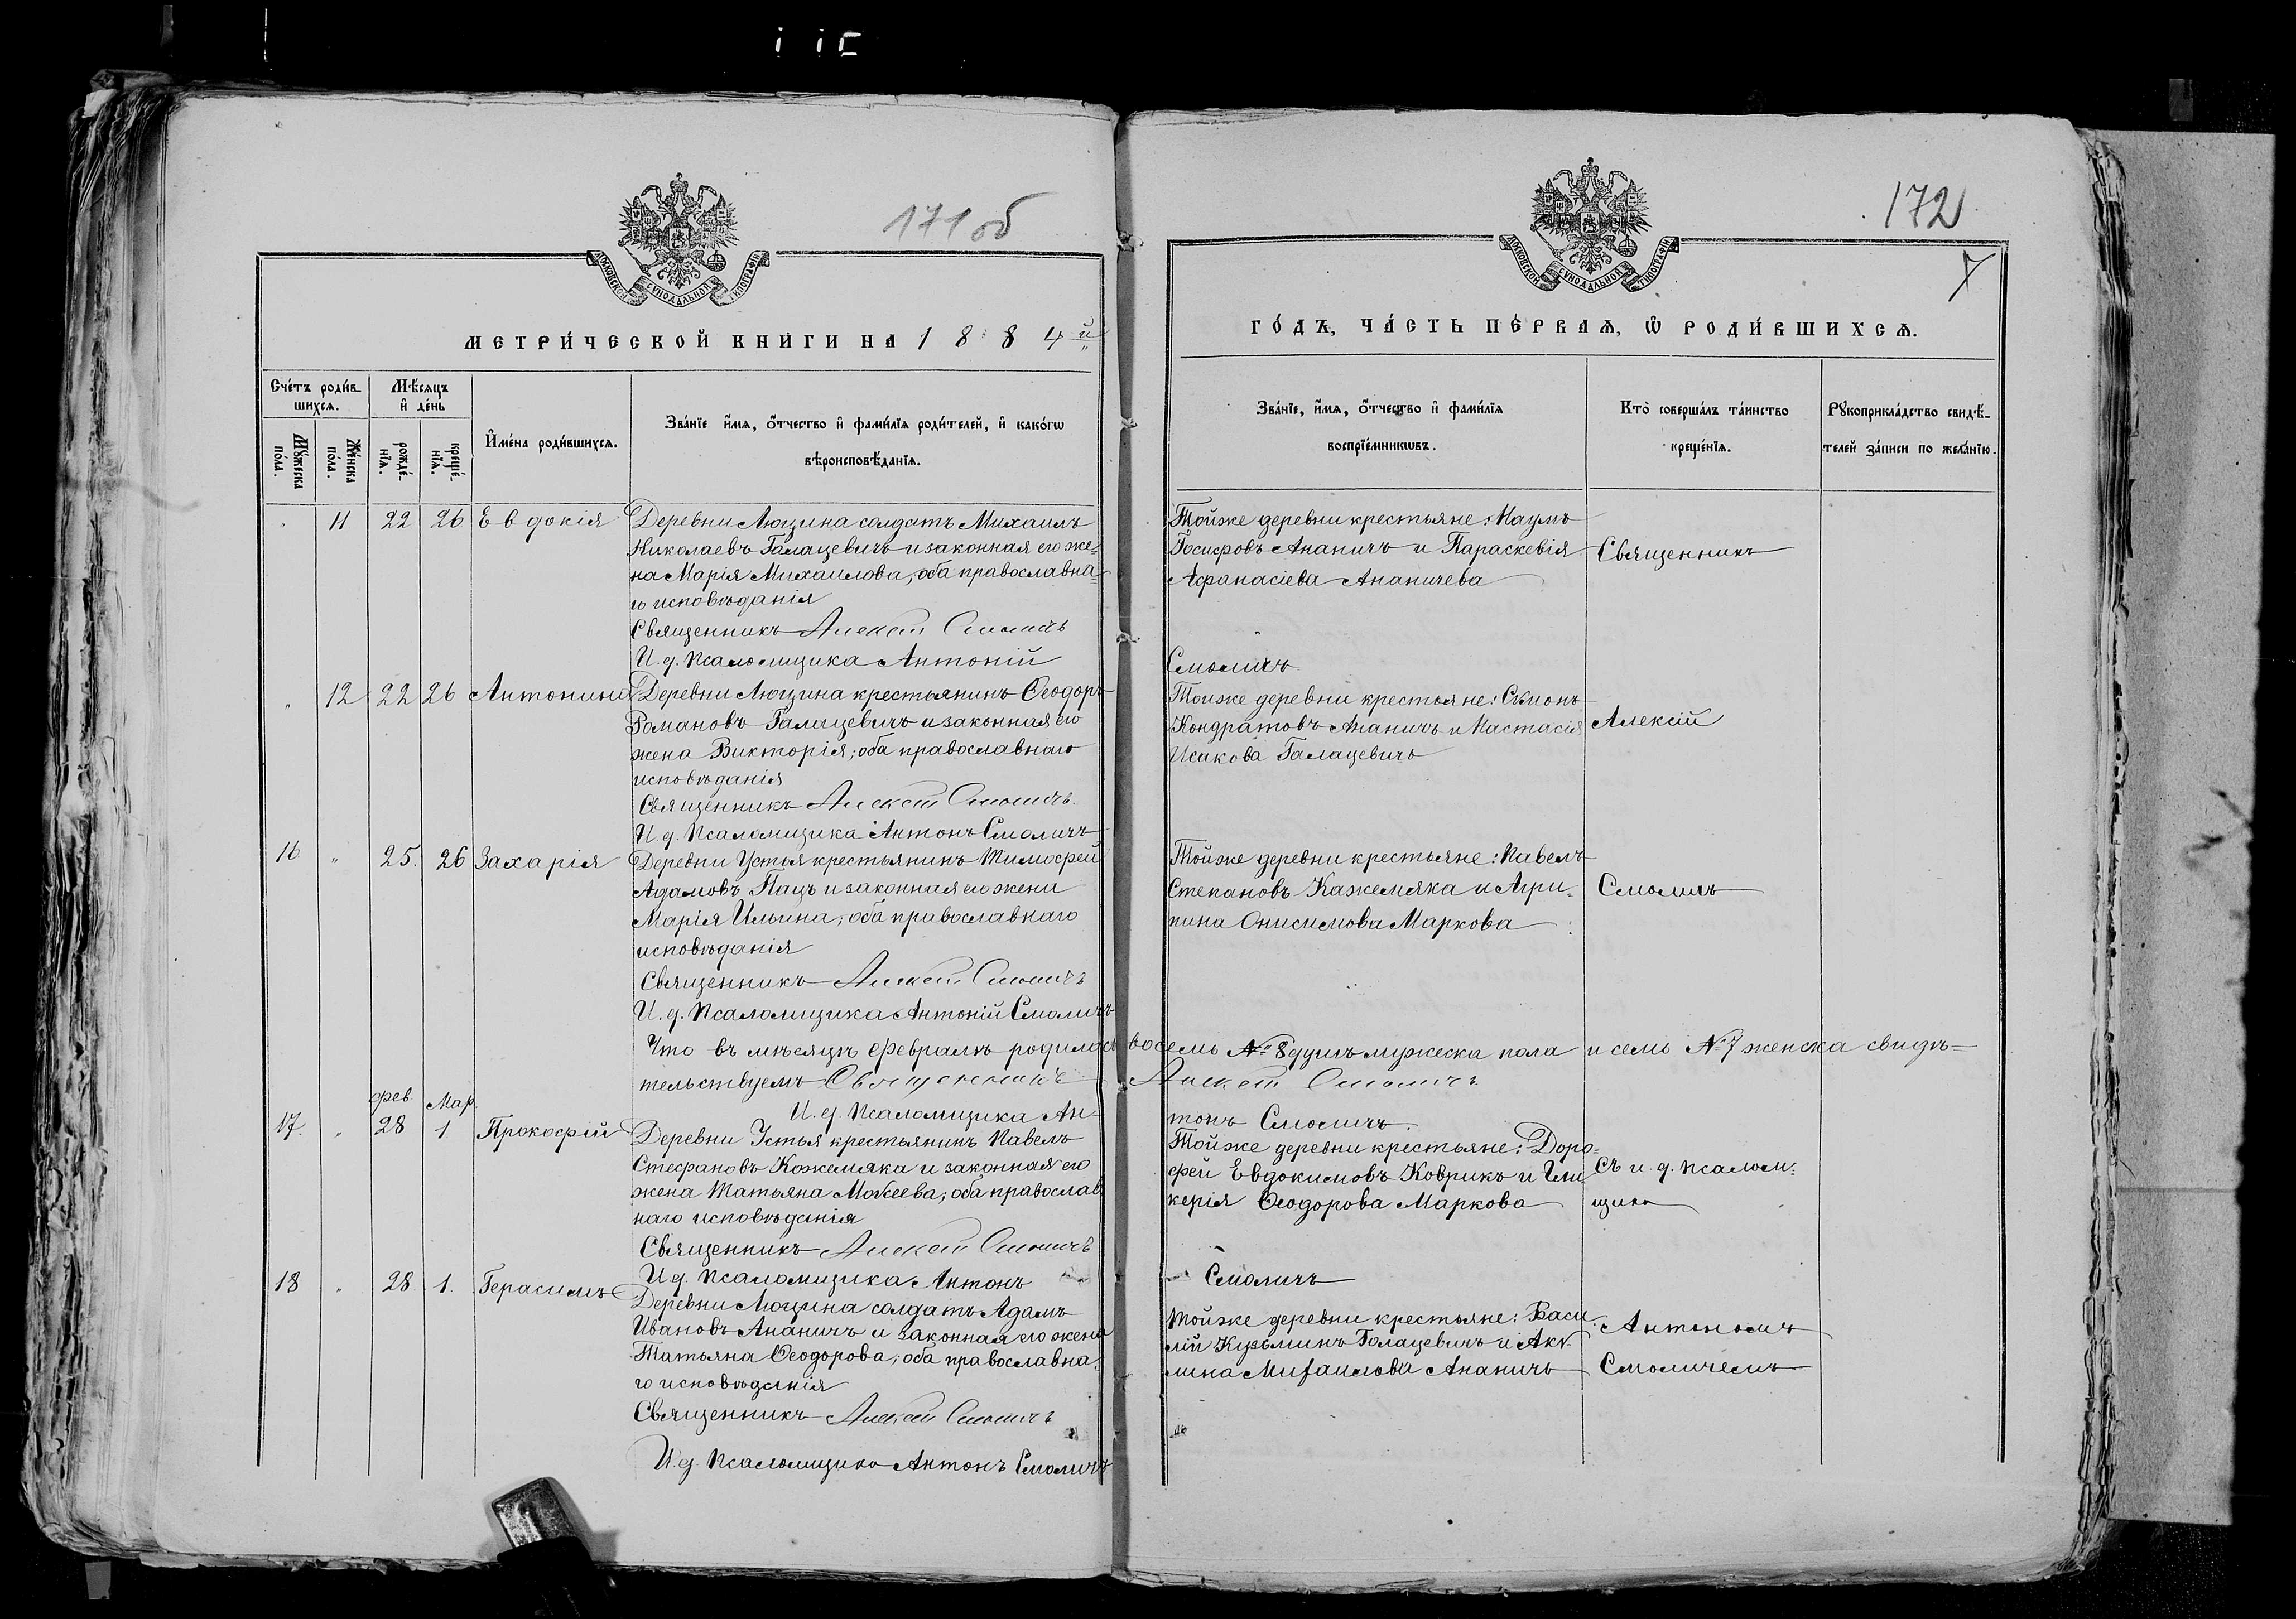 171 об
МОСКОВСКОЙ СУНОДАЛЬНОЙ ТИПОГРАФІИ
МЕТРИ́ЧЕСКОЙ КНИ́ГИ НА 1884й
Сче́тъ роди́в-
шихся.
Мѣ́сяцъ
и҆ де́нь
Мꙋ́жеска
по́ла.
Же́нска
по́ла.
рожде́-
нїѧ.
креще́-
нїѧ.
И҆мена̀ роди́вшихсѧ.
Зва́нїе и҆́мѧ, ѻ҆́тчество и҆ фами́лїѧ роди́телей, и҆ како́гѡ
вѣроисповѣ́данїѧ.
" 11 22 26 Евдокія
Деревни Люцина солдатъ Михаилъ
Николаевъ Галацевичъ и законная его же-
на Марія Михаилова, оба православна-
го исповѣданія
Священникъ Алексій Смоличъ
И. д. Псаломщика Антоній
" 12 22 26 Антонина
Деревни Люцина крестьянинъ Ѳеодоръ
Романовъ Галацевичъ и законная его
жена Викторія; оба православнаго
исповѣданія
Священникъ Алексій Смоличъ
И. д. Псаломщика Антонъ Смоличъ
16 " 25. 26 Захарія
Деревни Устья крестьянинъ Тимофей
Адамовъ Пацъ и законная его жена
Марія Ильина, оба православнаго
исповѣданія
Священникъ Алексій Смоличъ
И. д. Псаломщика Антоній Смоличъ
Что въ мѣсяцѣ Февралѣ родилось восемь № 8 душъ мужеска пола и семь № 7 женска свидѣ-
тельствуемъ Священникъ Алексій Смоличъ
И. д. Псаломщика Антонъ Смоличъ
фев. Мар.
17. " 28 1. Прокофій
Деревни Устья крестьянинъ Павелъ
Стефановъ Кожемяка и законная его
жена Татьяна Мокеева; оба православ-
наго исповѣданія
Священникъ Алексій Смоличъ
И. д. Псаломщика Антонъ
18 " 28 1. Герасимъ
Деревни Люцина солдатъ Адамъ
Ивановъ Ананичъ и законная его жена
Татьяна Ѳеодорова; оба православна-
го исповѣданія
Священникъ Алексій Смоличъ
И. д. Псаломщика Антонъ Смоличъ
172
7
МОСКОВСКОЙ СУНОДАЛЬНОЙ ТИПОГРАФІИ
ГО́ДЪ, ЧА́СТЬ ПЕ́РВАѦ, Ѡ҆ РОДИ́ВШИХСѦ.
Зва́нїе, и҆́мѧ, ѻ҆́тчество и҆ фами́лїѧ
воспрїе́мникѡвъ.
Кто̀ соверша́лъ та́инство
креще́нїѧ.
Рꙋкоприкла́дство свидѣ́-
телей за́писи по жела́нїю.
Тойже деревни крестьяне: Наумъ
Іосифовъ Ананичъ и Параскевія
Афанасіева Ананичева
Священникъ
Смоличъ
Тойже деревни крестьяне: Симонъ
Кондратовъ Ананичъ и Настасія
Исакова Галацевичъ
Алексій
Тойже деревни крестьяне: Павелъ
Степановъ Кажемяка и Агри-
пина Онисимова Маркова
Смоличъ
Тойже деревни крестьяне: Доро-
фей Евдокимовъ Коврикъ и Гли-
керія Ѳеодорова Маркова
Съ и. д. псалом-
щика
Смоличъ
Тойже деревни крестьяне: Васи-
лій Кузьминъ Галацевичъ и Аку-
лина Михаилова Ананичъ
Антономъ
Смоличемъ